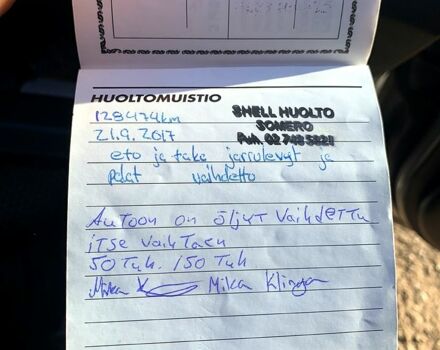 HUOLTOMUISTIO
128474km
SHELL HUOLTO
SOMERO
21.9.2017
Puh. 02 748 5821
eto ja taka jarrulevyt ja
palat vaihdettu
AUTOON on öljyt vaihdettu
itse vaihtaen
50 Tuh. 150 Tuh
Mika K Mika